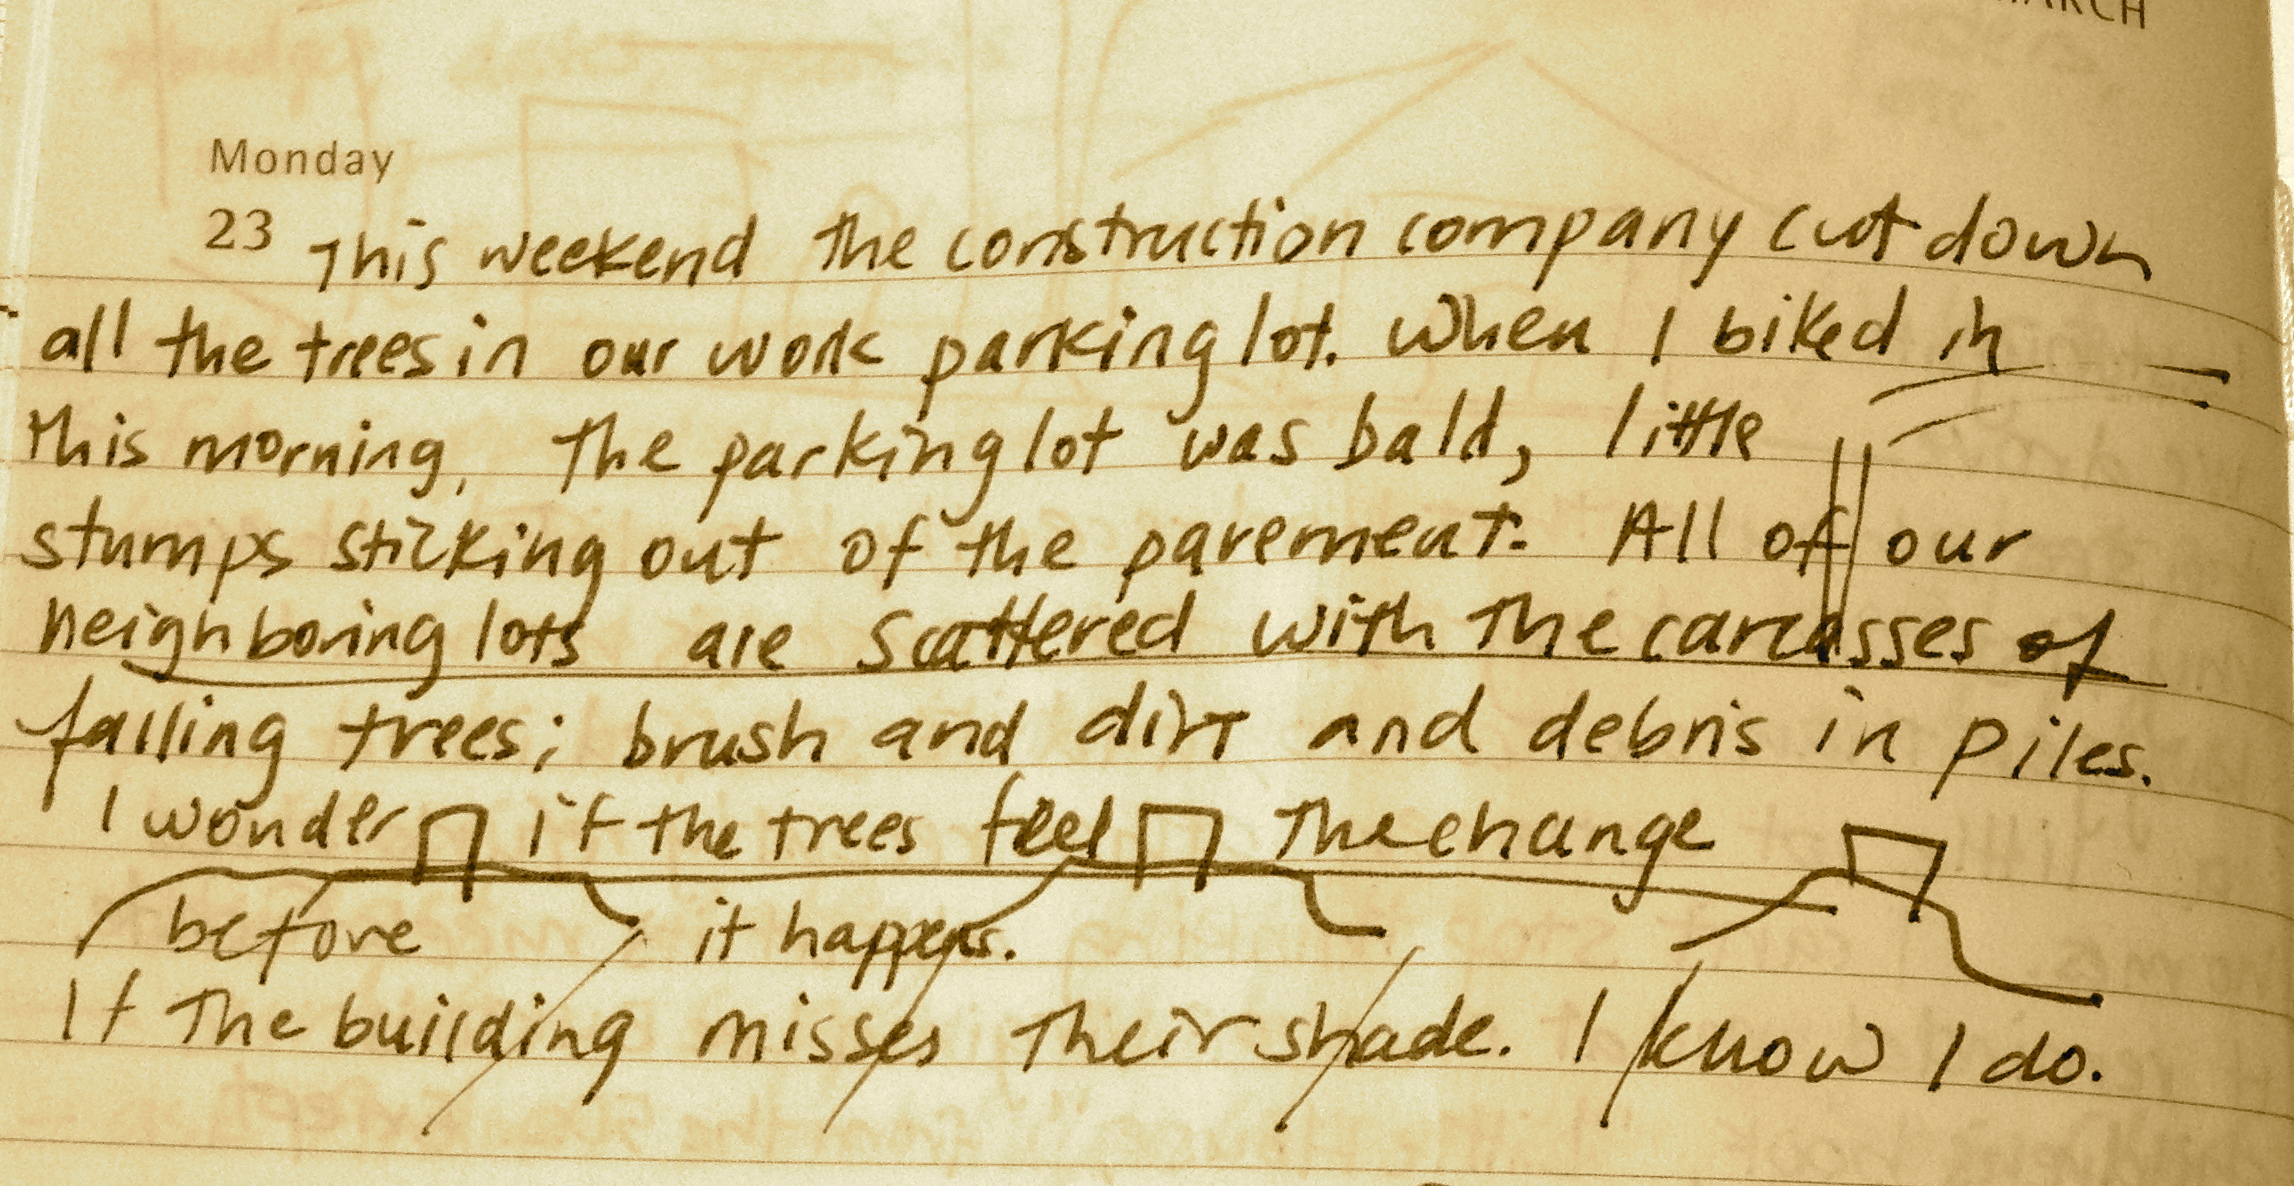 MARCH
Monday
23 This weekend the construction company cut down
all the trees in our work parking lot. When I biked in
this morning, the parking lot was bald, little
stumps sticking out of the pavement. All of our
neighboring lots are scattered with the carcasses of
falling trees; brush and dirt and debris in piles.
I wonder if the trees feel the change
before it happens.
If the building misses their shade. I know I do.